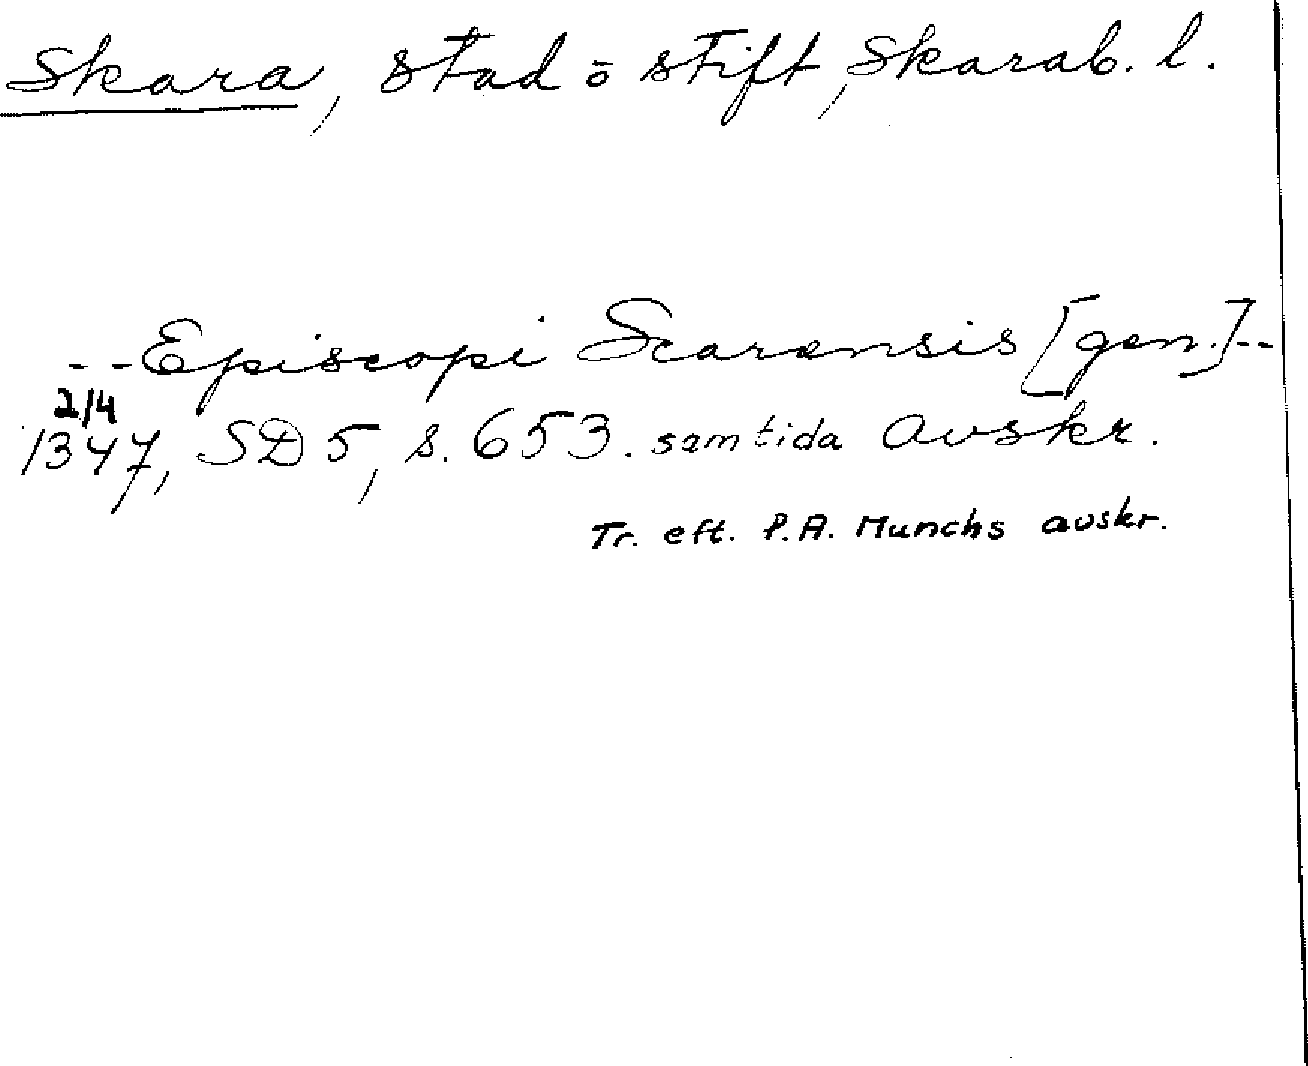 Skara, stad o stift, Skarab. l.
--Episcopi Scarensis [gen.]--
2/4
1347, SD 5, s. 653. samtida avskr.
Tr. eft. P.A. Munchs avskr.